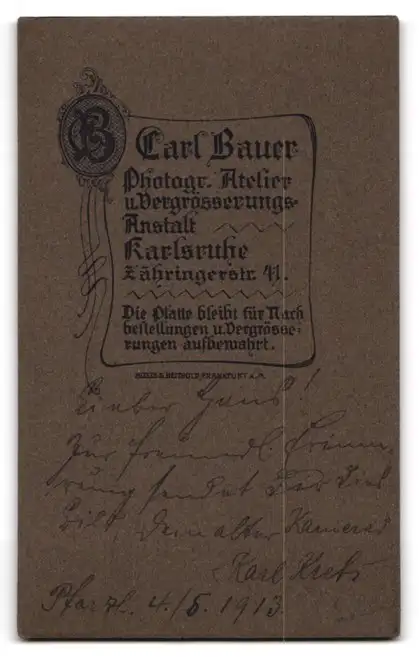 CB
Carl Bauer
Photogr. Atelier
u. Vergrösserungs-
Anstalt
Karlsruhe
Zähringerstr. 41.
Die Platte bleibt für Nach
bestellungen u. Vergrösse-
rungen aufbewahrt.
FRANKFURT A. M.
Lieber Hans!
Zur freundl. Erinne-
rung sendet Dir Dies
Bild, Dein alter Kamerad
Karl Krebs
4./5. 1913.